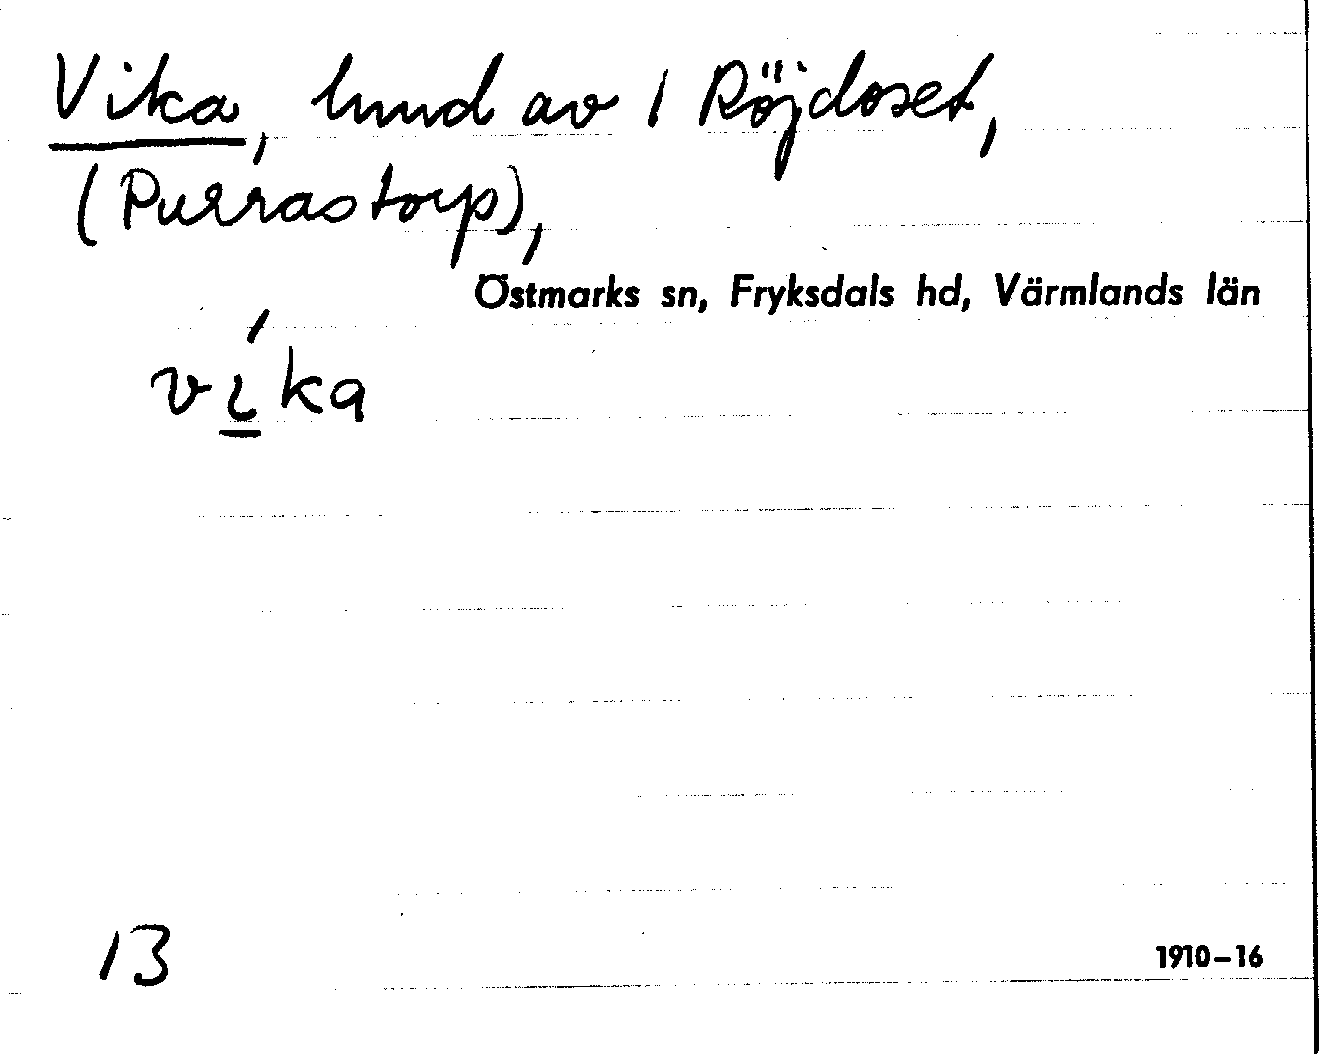 Vika, hmd av 1 Röjdoset,
(Purrastorp),
Östmarks sn, Fryksdals hd, Värmlands län
víka
13
1910–16